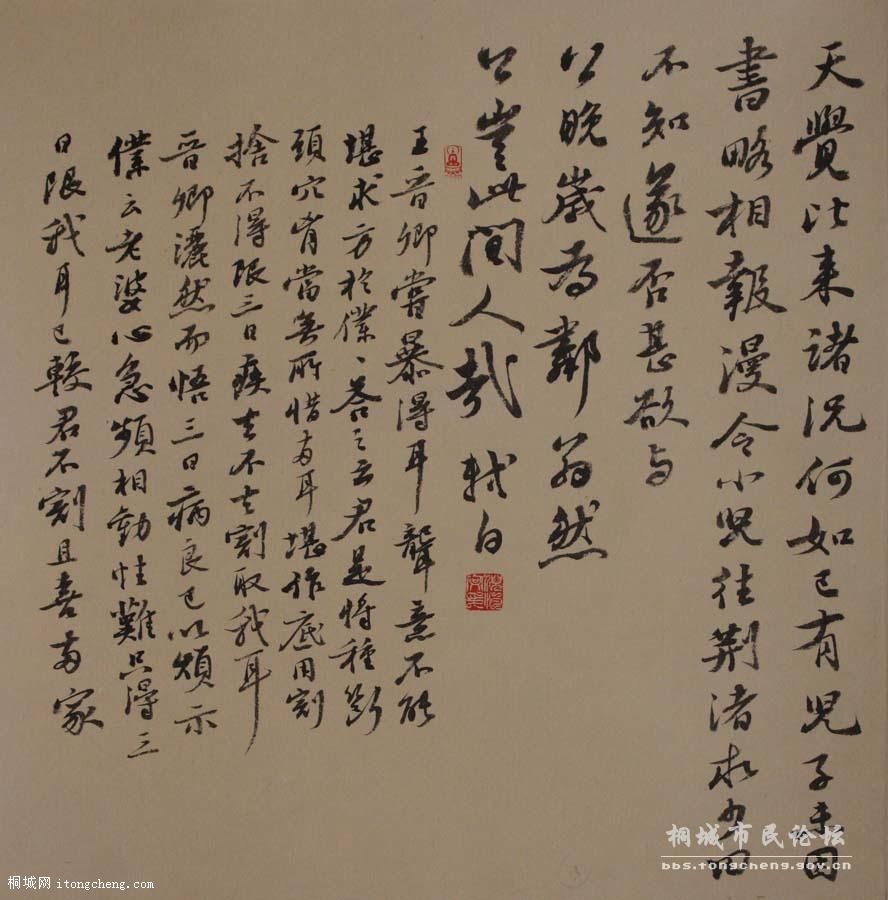 天覺比来諸況何如已有兒子未因
書略相報漫令小兒往荆渚求少田
不知遂否甚欲与
公晚歲為鄰翁然
公豈此間人哉 軾白
王晋卿嘗暴得耳聾意不能
堪求方於僕、答之云君是將種斷
頭穴胷當無所惜兩耳堪作底用割
捨不得限三日疾去不去割取我耳
晋卿灑然而悟三日病良已以頌示
僕云老婆心急頻相勸性難只得三
日限我耳已較君不割且喜兩家
桐城市民论坛
bbs.tongcheng.gov.cn
桐城网 itongcheng.com